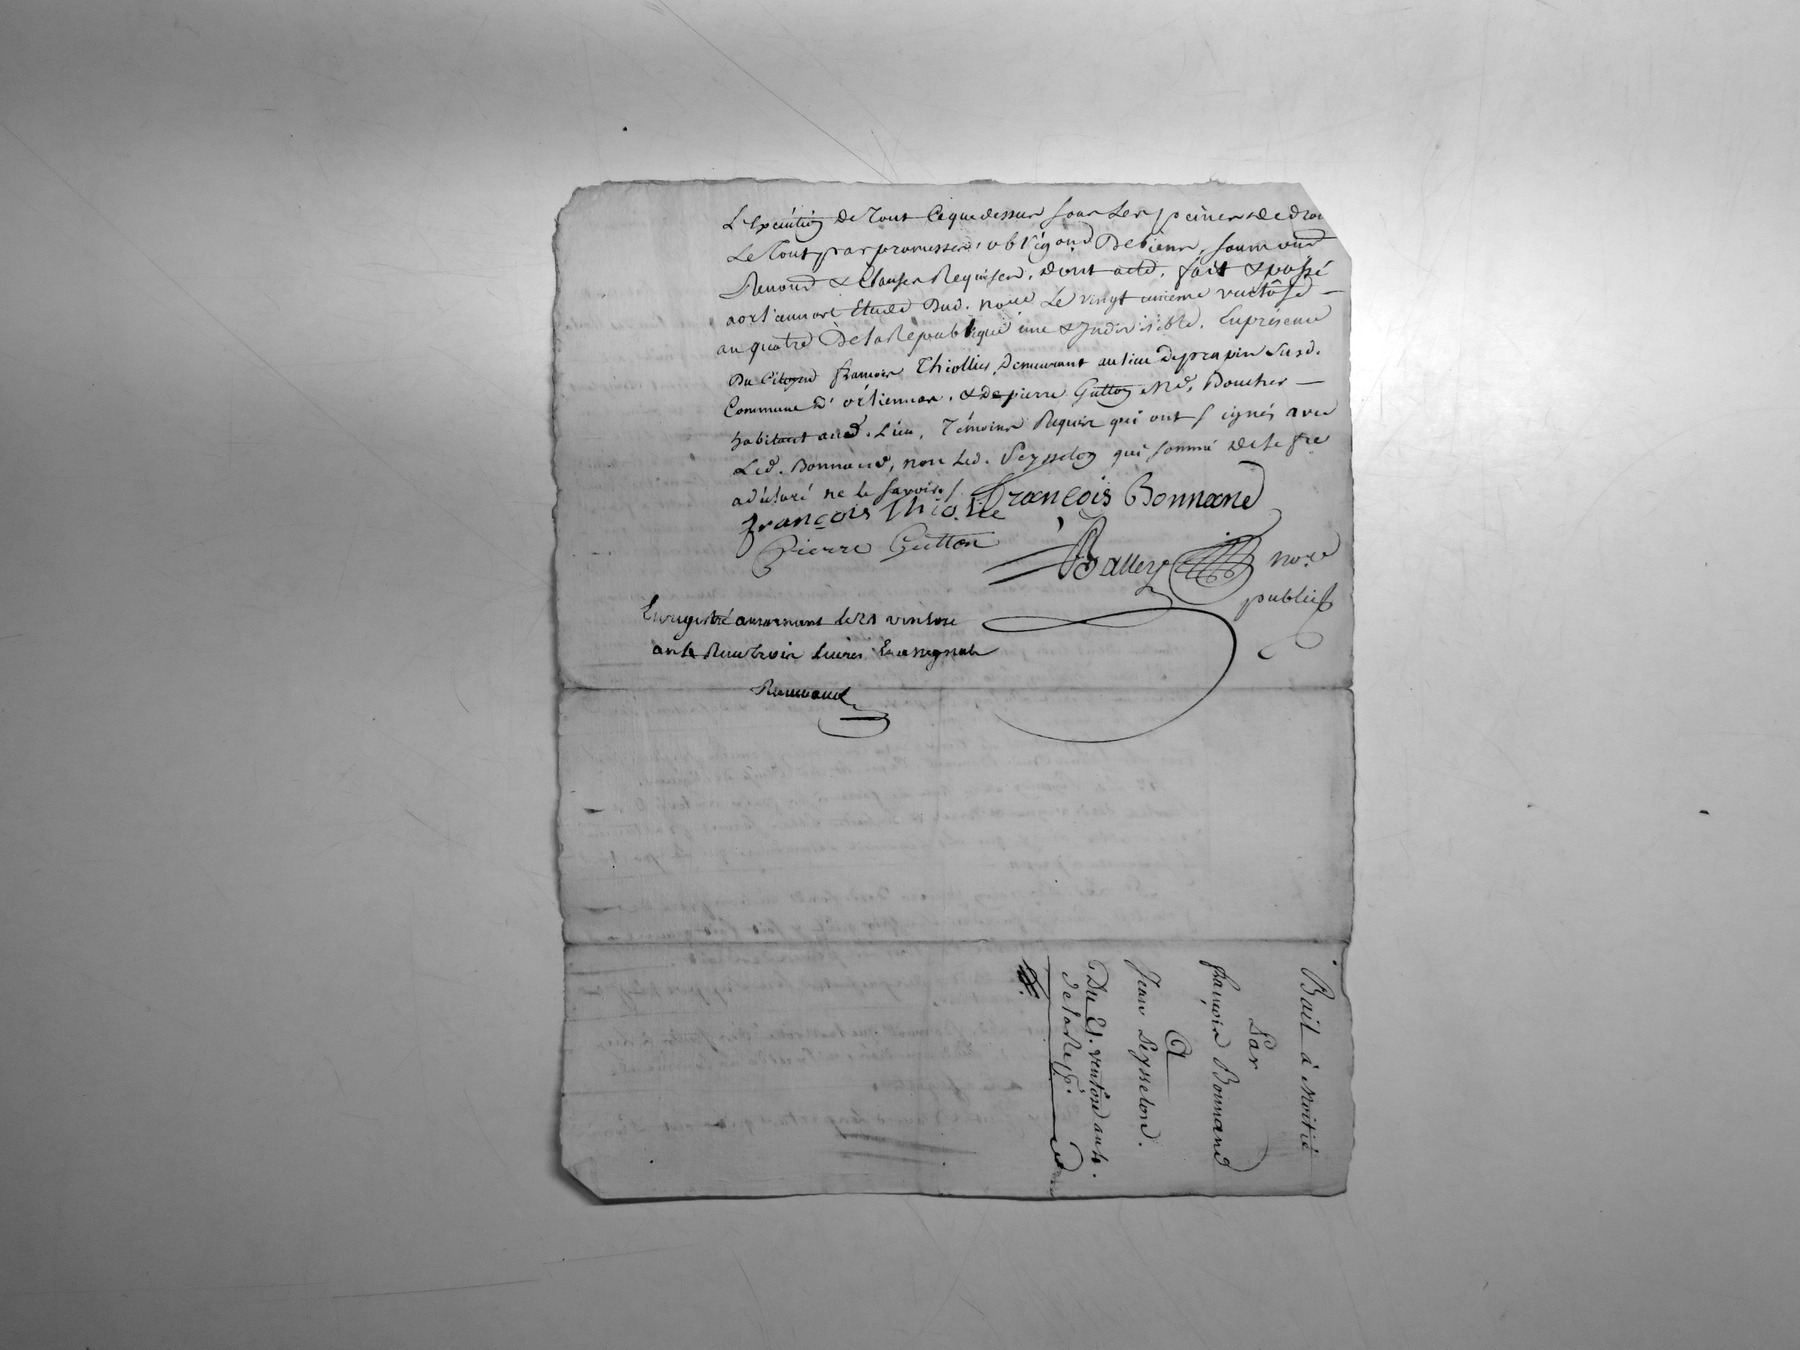 L'exécution de tout ce que dessus sous les peines de droi
Le tout par promesses, obligaond de biens, soumond
Renond & Clauses Requises, dont acte, fait & passé
a ortiennort Etude dud. nore Le vingt unieme ventôse
an quatre de la Republique une & Indivisible. En présence
du Citoyen françois Thiollier, demeurant au lieu de sud.
Commune d' & de pierre Gutton Md. Boucher
habitant aud. Lieu, Témoins Requis qui ont signés avec
Led. Bonnand, non Led. Seysselon qui sommé de le fre
a déclaré ne le savoir /.
françois Bonnand
françois thiolie
Pierre Gutton
Ballery nore
public
Enregistré a le 21 ventose
an 4 Recu trois livres En assignats

Bail à Moitié
Par
françois Bonnand
A
Jean Seysselond.
Du 21. ventôse an 4.
de la Rep.